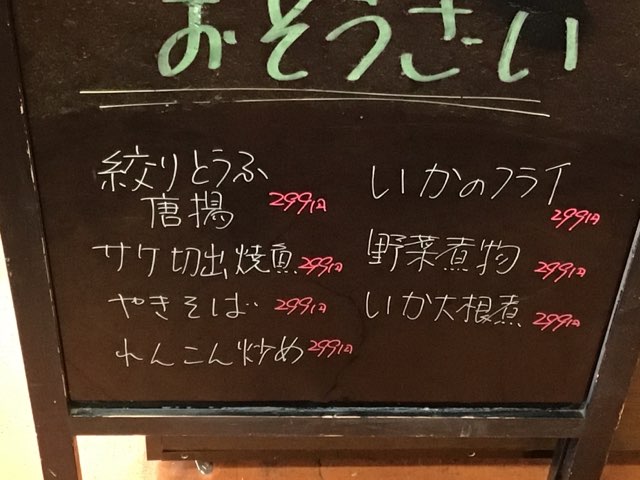 おそうざい
絞りとうふ
唐揚 299円
サケ切出焼魚 299円
やきそば 299円
れんこん炒め 299円
いかのフライ
299円
野菜煮物 299円
いか大根煮 299円